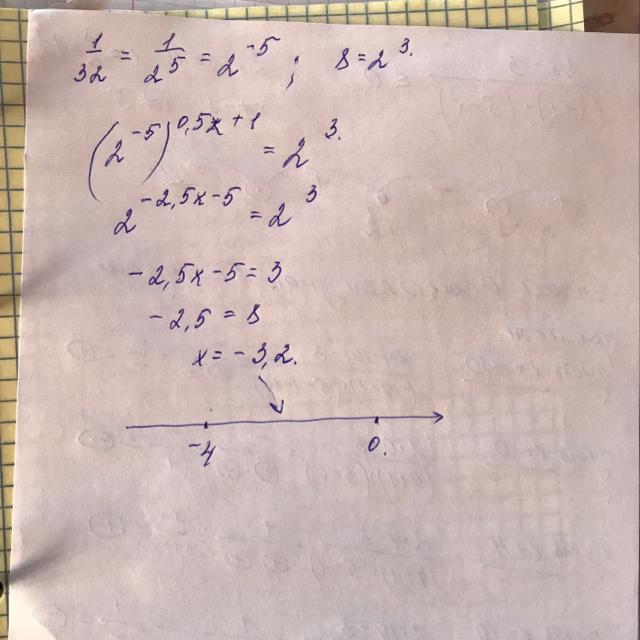 1/32 = 1/2⁵ = 2⁻⁵ ; 8 = 2³.
(2⁻⁵)^(0,5x+1) = 2³.
2^(-2,5x-5) = 2³
-2,5x-5=3
-2,5 = 8
x = -3,2.
-4 0.